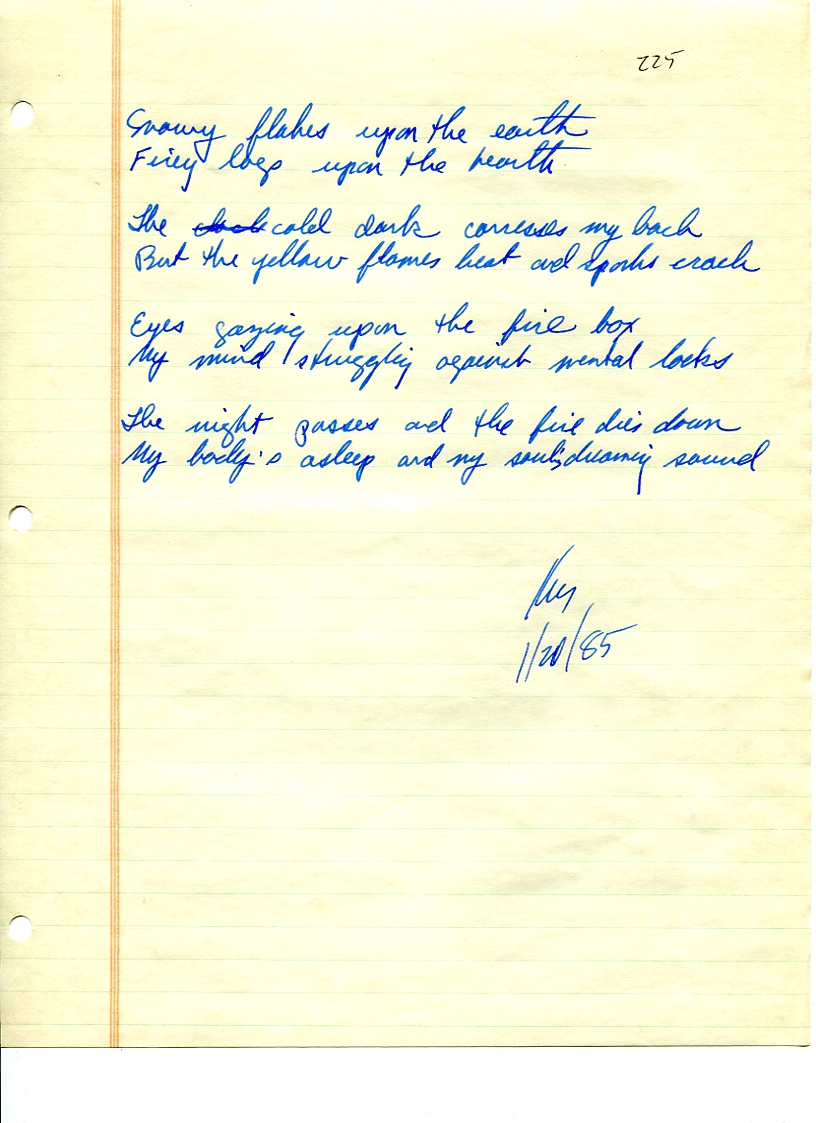 225
Snowy flakes upon the earth
Firey logs upon the hearth
The cold dark carresses my back
But the yellow flames heat and sparks crack
Eyes gazing upon the fire box
My mind struggling against mental locks
The night passes and the fire dies down
My body's asleep and my soul's dreaming sound
1/20/85